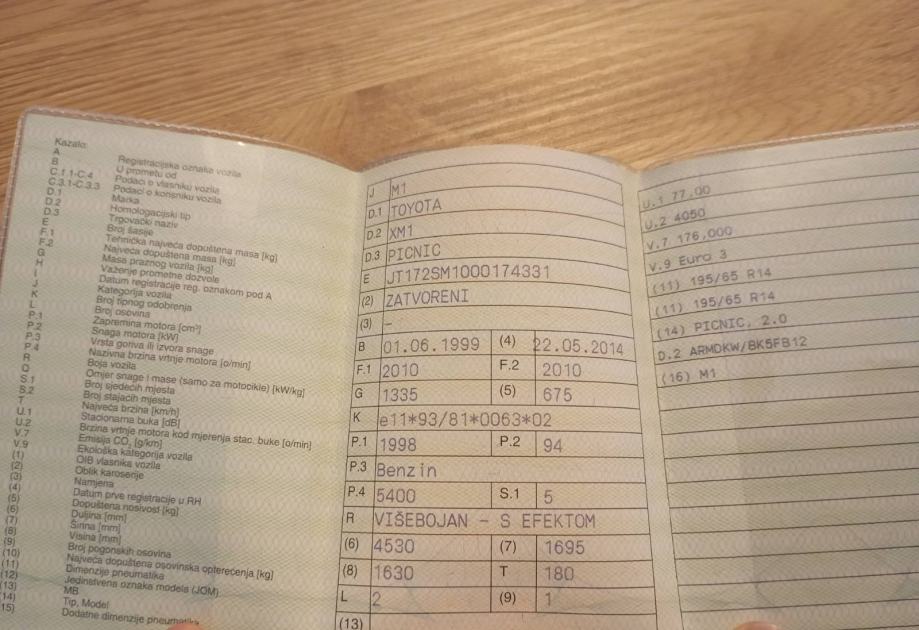 Kazalo:
A Registracijska oznaka vozila
B U prometu od
C.1.1-C.4 Podaci o vlasniku vozila
C.3.1-C.3.3 Podaci o korisniku vozila
D.1 Marka
D.2 Homologacijski tip
D.3 Trgovački naziv
E Broj šasije
F.1 Tehnička najveća dopuštena masa [kg]
F.2 Najveća dopuštena masa [kg]
G Masa praznog vozila [kg]
H Važenje prometne dozvole
I Datum registracije reg. oznakom pod A
J Kategorija vozila
K Broj tipnog odobrenja
L Broj osovina
P.1 Zapremina motora [cm³]
P.2 Snaga motora [kW]
P.3 Vrsta goriva ili izvora snage
P.4 Nazivna brzina vrtnje motora [o/min]
R Boja vozila
Q Omjer snage i mase (samo za motocikle) [kW/kg]
S.1 Broj sjedećih mjesta
S.2 Broj stajaćih mjesta
T Najveća brzina [km/h]
U.1 Stacionarna buka [dB]
U.2 Brzina vrtnje motora kod mjerenja stac. buke [o/min]
V.7 Emisija CO₂ [g/km]
V.9 Ekološka kategorija vozila
(1) OIB vlasnika vozila
(2) Oblik karoserije
(3) Namjena
(4) Datum prve registracije u RH
(5) Dopuštena nosivost [kg]
(6) Duljina [mm]
(7) Širina [mm]
(8) Visina [mm]
(9) Broj pogonskih osovina
(10) Najveća dopuštena osovinska opterećenja [kg]
(11) Dimenzije pneumatika
(12) Jedinstvena oznaka modela (JOM)
(13) MB
(14) Tip, Model
15) Dodatne dimenzije pneumatika
J M1
D.1 TOYOTA
D.2 XM1
D.3 PICNIC
E JT172SM1000174331
(2) ZATVORENI
(3) –
B 01.06.1999 (4) 22.05.2014
F.1 2010 F.2 2010
G 1335 (5) 675
K e11*93/81*0063*02
P.1 1998 P.2 94
P.3 Benzin
P.4 5400 S.1 5
R VIŠEBOJAN – S EFEKTOM
(6) 4530 (7) 1695
(8) 1630 T 180
L 2 (9) 1
(13)
U.1 77,00
U.2 4050
V.7 176,000
V.9 Euro 3
(11) 195/65 R14
(11) 195/65 R14
(14) PICNIC, 2.0
D.2 ARMDKW/BK5FB12
(16) M1